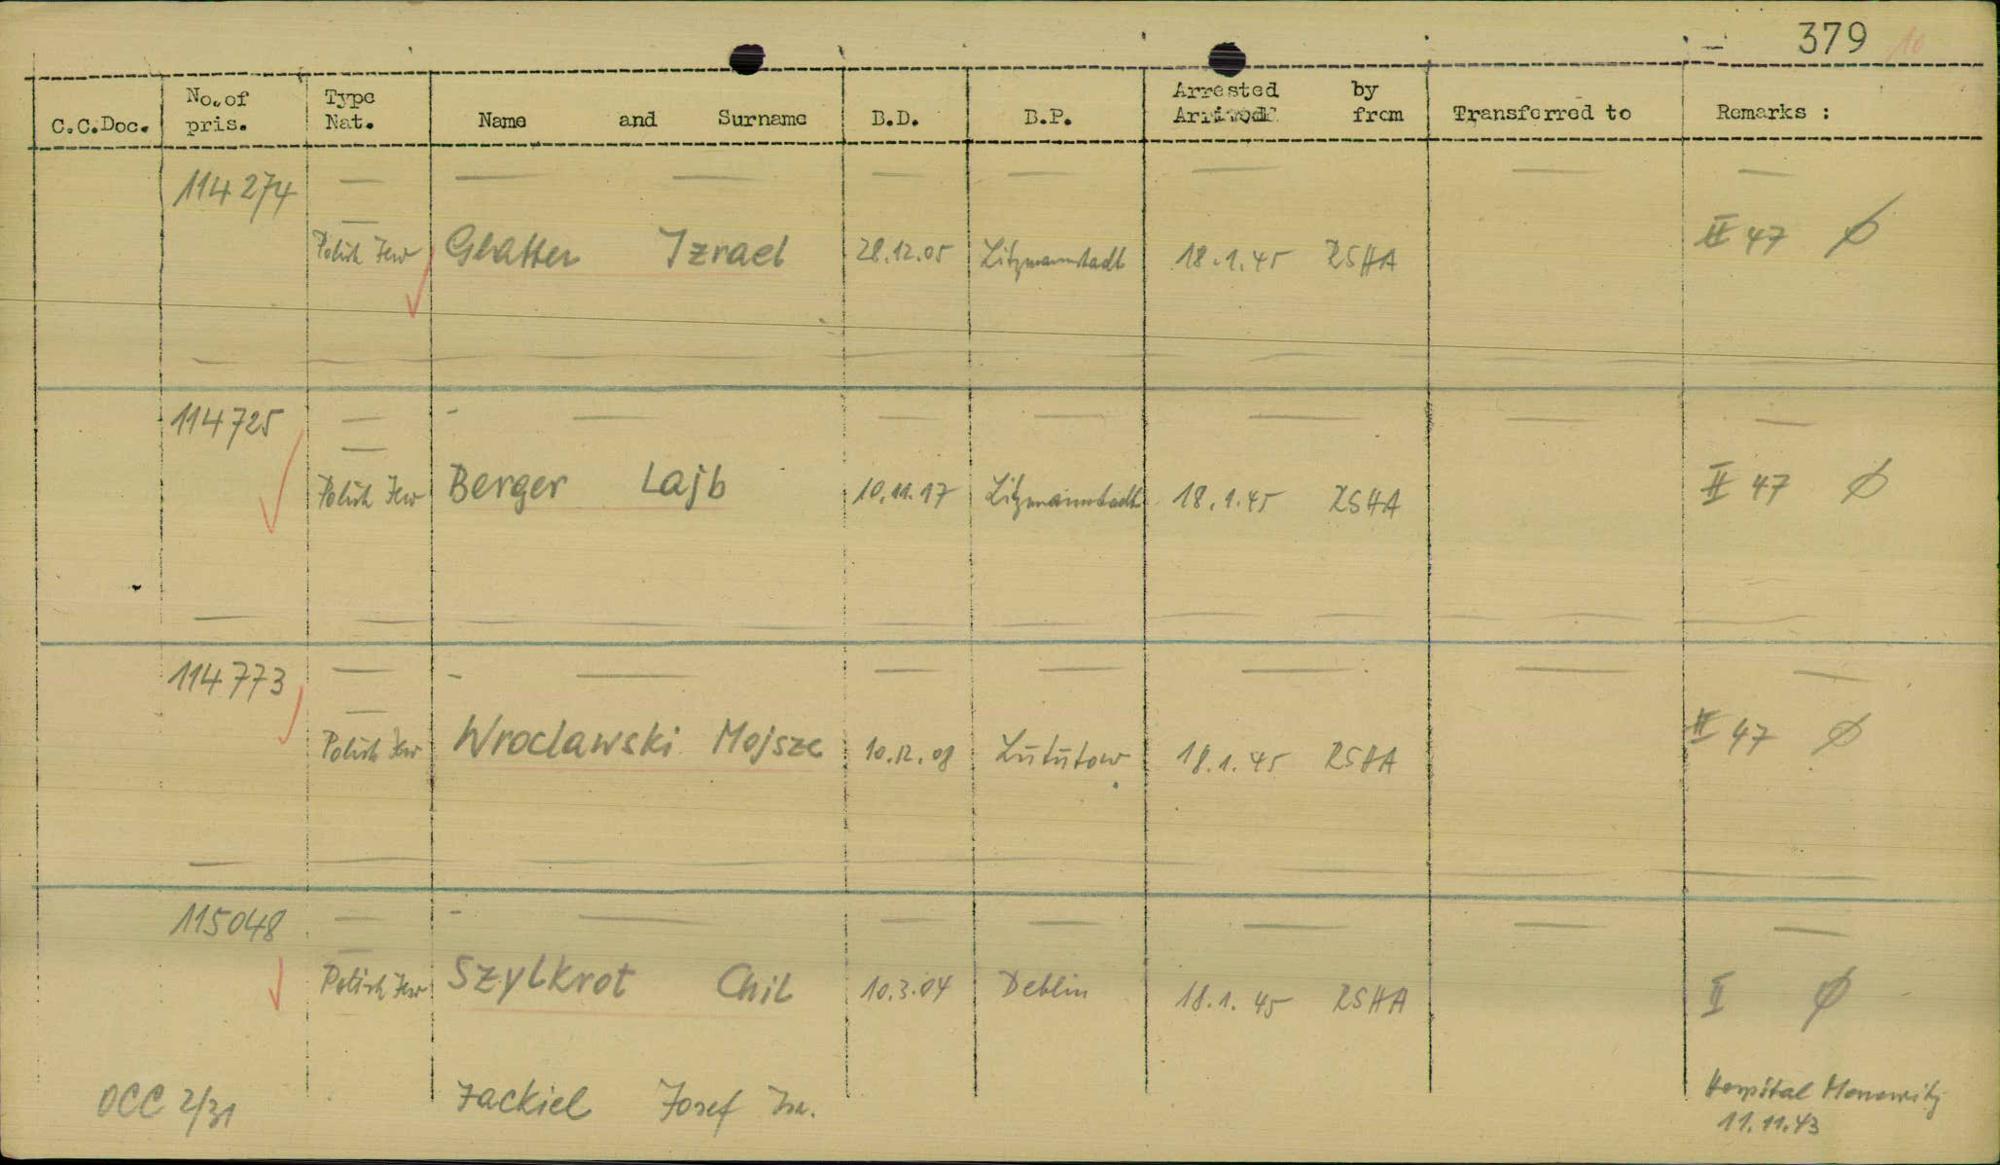 379 10
C.C.Doc. No. of pris. Type Nat. Name and Surname B.D. B.P. Arrested by Arrived from Transferred to Remarks :
114 274
Polish Jew Glatter Izrael 28.12.05 Litzmannstadt 18.1.45 RSHA II 47 Ø
114 725
Polish Jew Berger Lajb 10.11.17 Litzmannstadt 18.1.45 RSHA II 47 Ø
114 773
Polish Jew Wroclawski Mojsze 10.12.08 Lututow 18.1.45 RSHA II 47 Ø
115048
Polish Jew Szylkrot Chil 10.3.04 Deblin 18.1.45 RSHA II Ø
OCC 2/31 Jackiel Josef Isr. Hospital Monowitz
11.11.43